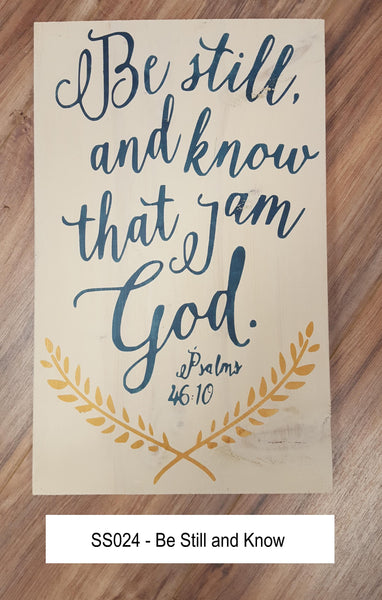 Be still,
and know
that I am
God.
Psalms
46:10
SS024 - Be Still and Know